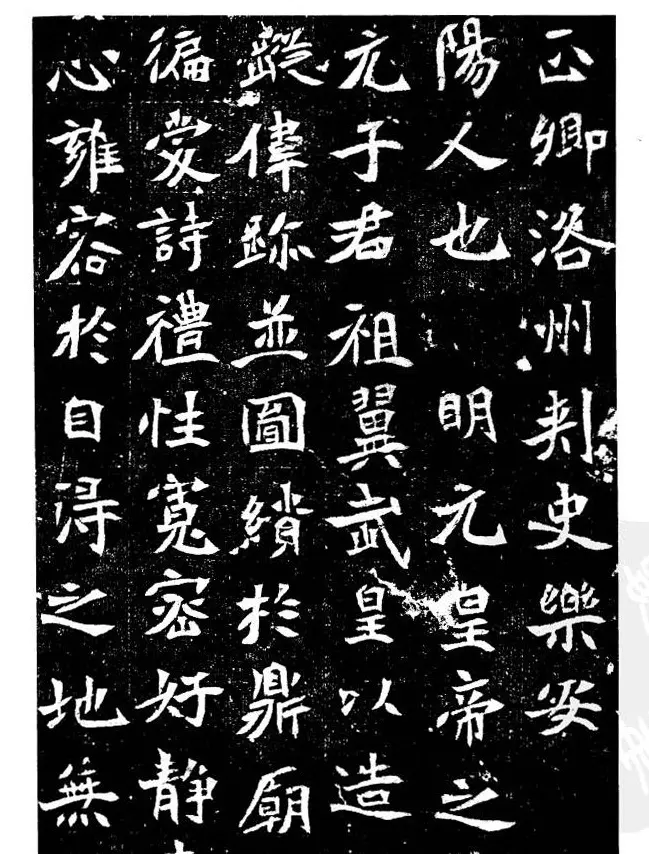 正卿洛州刺史樂安
陽人也 明元皇帝之
元子君祖翼武皇以造
蹤偉跡並圖績於鼎廟
徧愛詩禮性寬密好静
心雍容於自得之地無